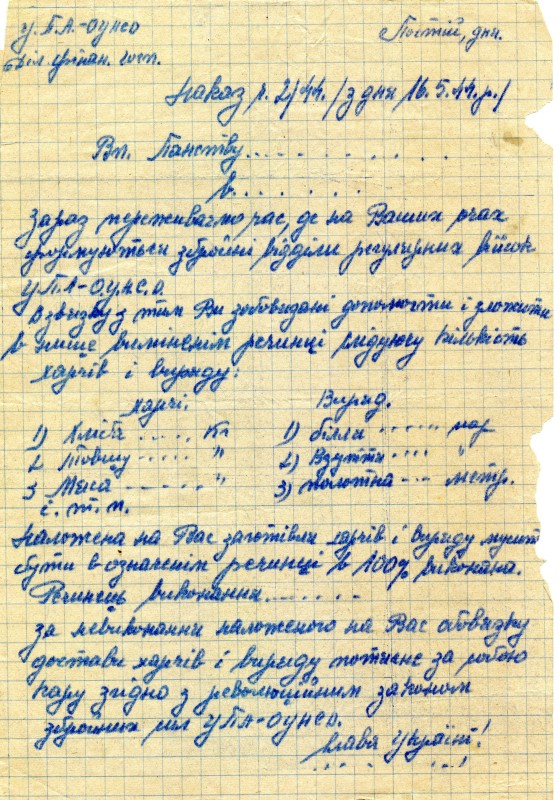 У.П.А-ОУНСД
Відділ фінан. госп.
Постій, дня.
Наказ ч. 2/44. /з дня 16.5.44.р./
Вп. Панству..............
в..............
Зараз переживаємо час, де на Ваших очах
формуються збройні відділи регулярних військ
УПА-О.у.н.с.д.
Взвязку з тим Ви зобовязані допомогти і зложити
в нище виміненім речинці слідуючу кількість
харчів і виряду:
харчі.
1) Хліба ...... Кг
2 Товщу ...... "
3 Мяса ...... "
і. т. п.
Виряд.
1) білля ...... пар
2) Взуття ...... "
3) полотна ... метр.
Наложена на Вас заготівля харчів і виряду мусить
бути в означенім речинці в 100% виконана.
Речинець виконання.......
За невиконання наложеного на Вас обовязку
достави харчів і виряду потягне за собою
кару згідно з революційним законом
збройних сил УПА-ОУНСД.
Слава Україні!